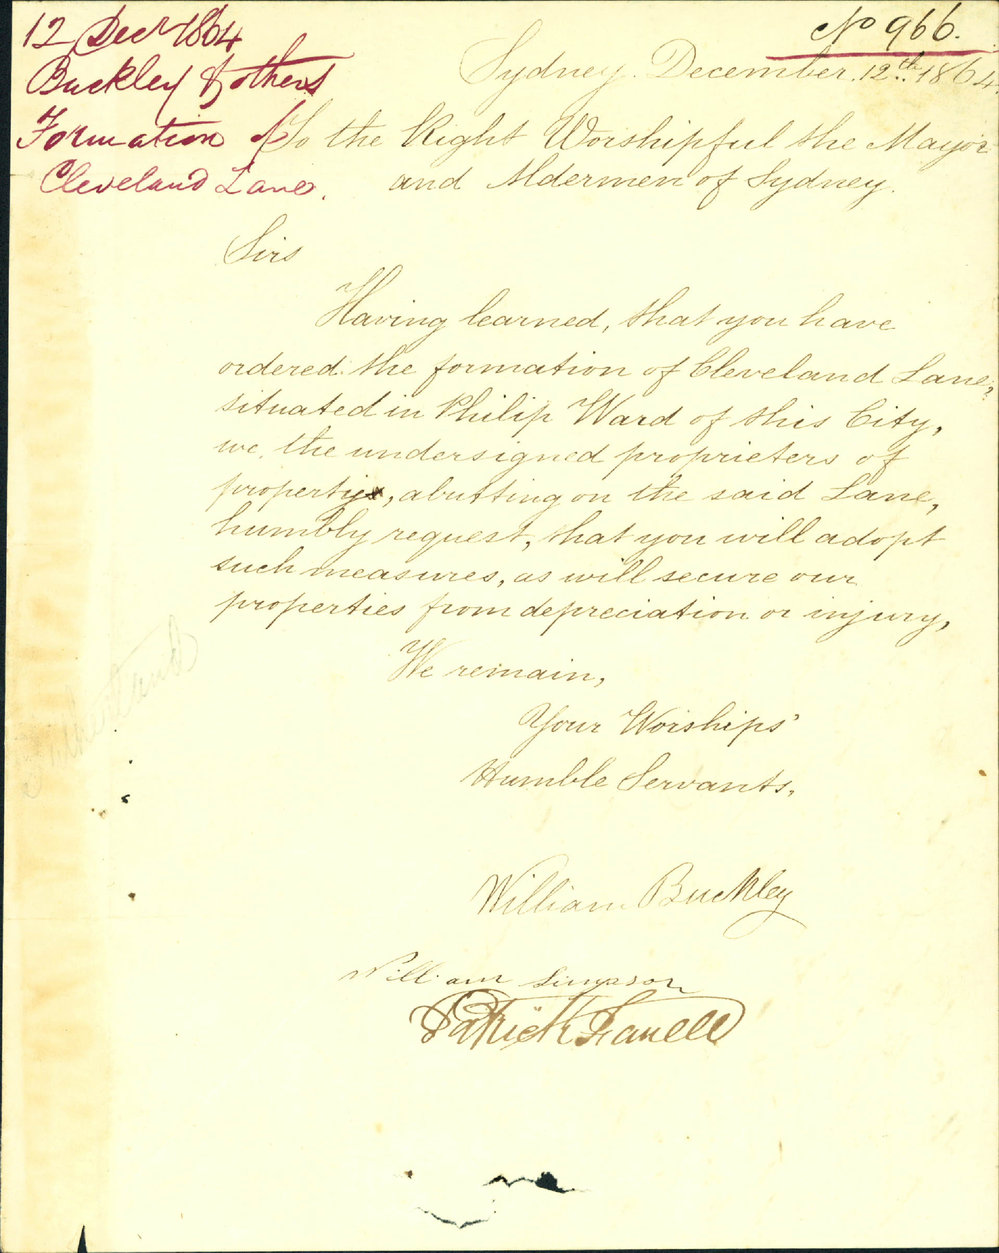 12 Decr 1864
Buckley & others
Formation of
Cleveland Lane.
No 966.
Sydney. December. 12th. 1864.
To the Right Worshipful the Mayor
and Aldermen of Sydney.
Sirs
Having learned, that you have
ordered the formation of Cleveland Lane,
situated in Philip Ward of this City,
we, the undersigned proprieters of
property, abutting on the said Lane,
humbly request, that you will adopt
such measures, as will secure our
properties from depreciation or injury,
We remain,
Your Worships'
Humble Servants.
William Buckley
William Simpson
Patrick